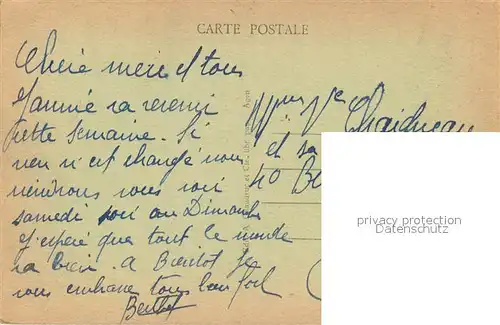 CARTE POSTALE
Chère mère et tous
va revenir
cette semaine. Si
rien n'est changé nous
viendrons vous voir
samedi soir ou Dimanche
J'espère que tout le monde
va bien. à Bientot je
vous embrasse tous bien fort
Mme Vve
et sa
40
privacy protection
Datenschutz